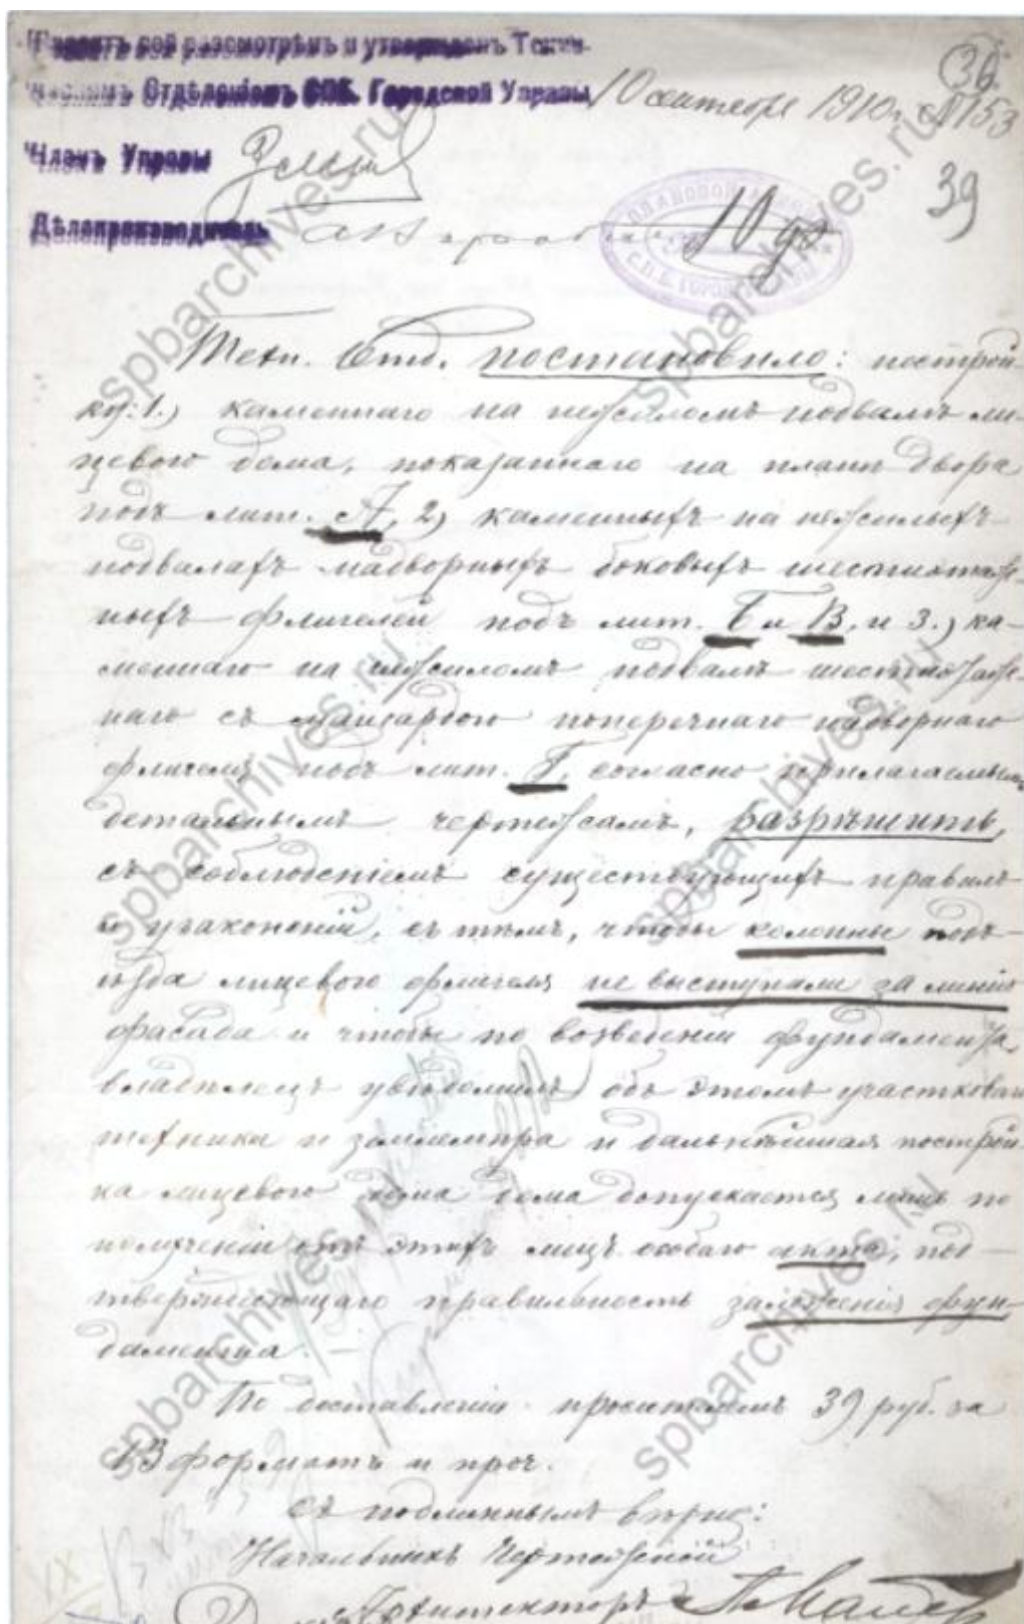 Проектъ сей разсмотрѣнъ и утвержденъ Техни-
ческимъ Отдѣленіемъ СПБ. Городской Управы 10 сентября 1910 г. № 153
36
Членъ Управы
39
Дѣлопроизводитель
Техн. Отд. постановило: построй-
ку: 1.) каменнаго на нежиломъ подвалѣ ли-
цевого дома, показаннаго на планѣ двора
подъ лит. А, 2) каменныхъ на нежилыхъ
подвалахъ надворныхъ боковыхъ шестиэтаж-
ныхъ флигелей подъ лит. Б и В, и 3.) ка-
меннаго на нежиломъ подвалѣ шестиэтаж-
наго съ мансардою поперечнаго надворнаго
флигеля подъ лит. Г, согласно прилагаемымъ
детальнымъ чертежамъ, разрѣшить,
съ соблюденіемъ существующихъ правилъ
и узаконеній, съ тѣмъ, чтобы колонны подъ-
ѣзда лицевого флигеля не выступали за линію
фасада и чтобы по возведеніи фундамента
владѣлецъ увѣдомилъ объ этомъ участковаго
техника и землемѣра и дальнѣйшая построй-
ка лицевого дома дома допускается лишь по
полученіи отъ этихъ лицъ особаго акта, под-
тверждающаго правильность заложенія фун-
дамента. —
По доставленіи просителемъ 39 руб. за
13 форматъ и проч.
Съ подлиннымъ вѣрно:
Начальникъ Чертежной
Архитекторъ
spbarchives.ru
spbarchives.ru
spbarchives.ru
spbarchives.ru
spbarchives.ru
spbarchives.ru